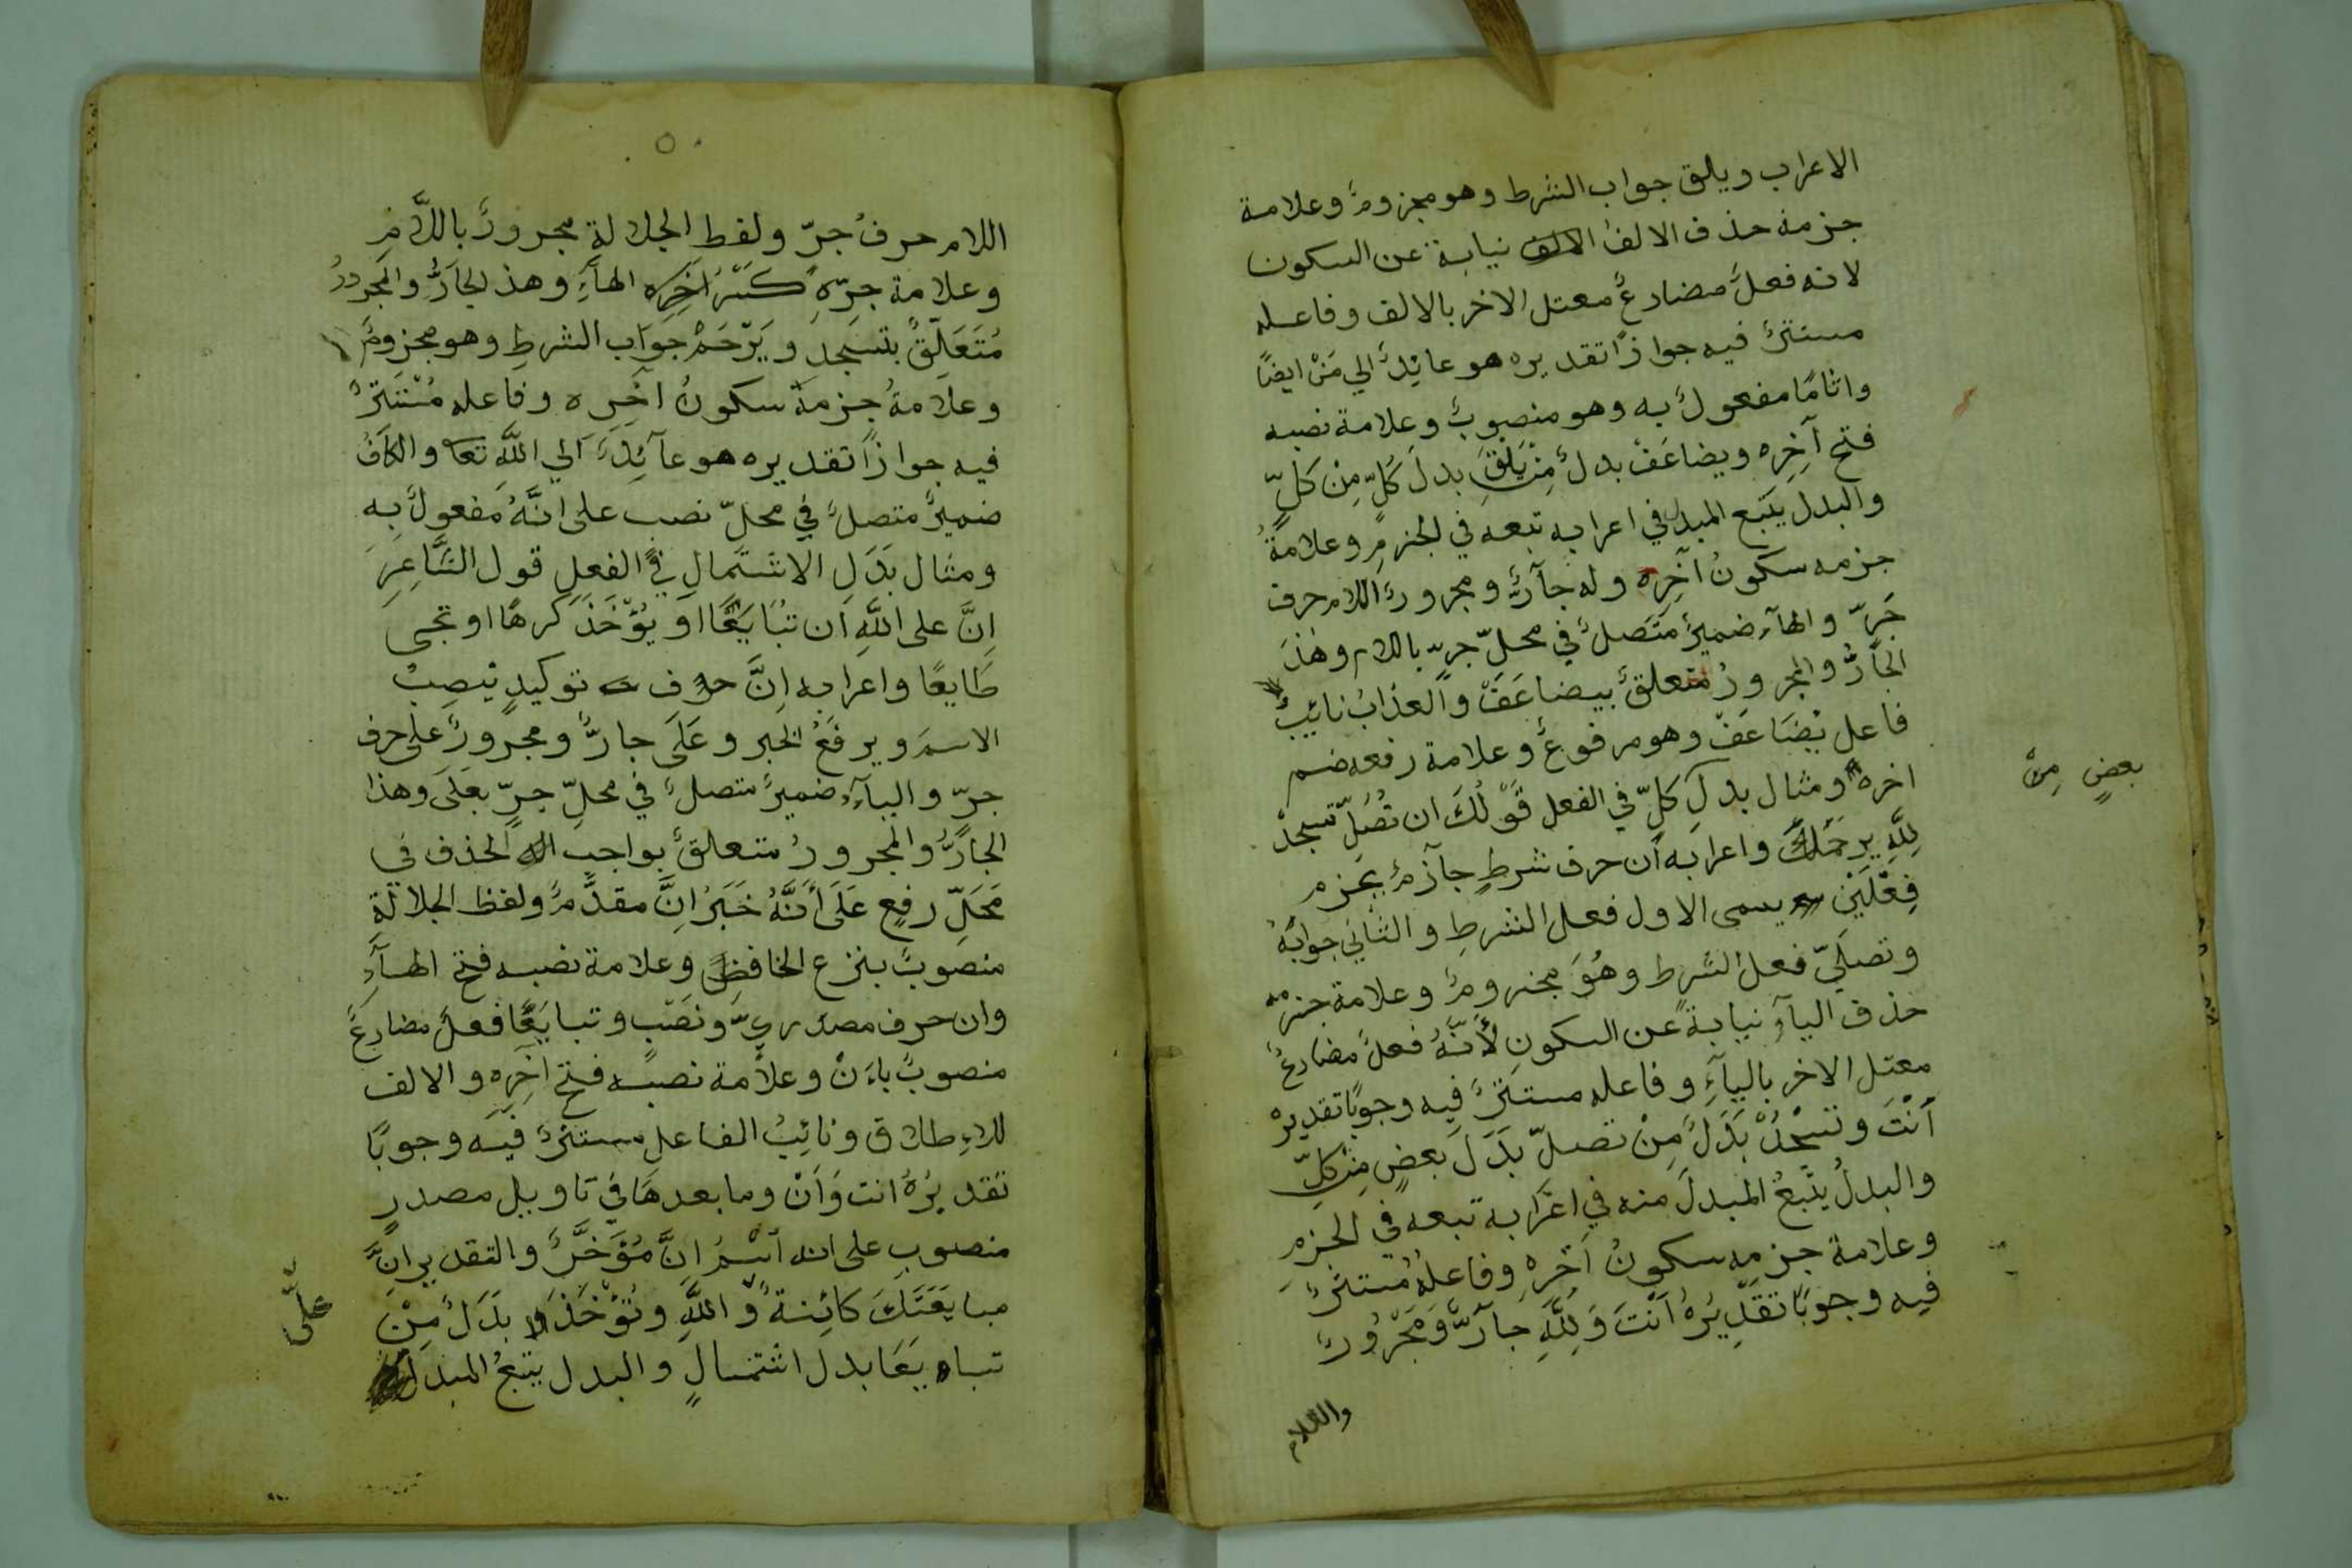 الاعراب ويلق جواب الشرط وهو مجزومٌ وعلامة
جزمه حذف الالف نيابة عن السكون
لانه فعلٌ مضارعٌ معتل الاخر بالالف وفاعله
مستترٌ فيه جوازًا تقديره هو عائدٌ الي مَنْ ايضًا
واثامًا مفعولٌ به وهو منصوبٌ وعلامة نصبه
فتح آخِرِه ويضاعَفْ بدلٌ مِنْ يَلْقَ بدلَ كُلٍّ مِنْ كلٍّ
والبدل يتبع المبدل في اعرابه تبعه في الجزمِ وعلامةُ
جزمه سكونُ آخِرِه وله جآرٌّ ومجرورٌ اللام حرف
جَرّ والهآء ضميرٌ متصلٌ في محلّ جرّ باللام وهٰذَ
الجآرُّ والمجرورُ متعلقٌ بيضاعَفْ والعذابُ نائبُ
فاعل يُضَاعَفْ وهو مرفوعٌ وعلامة رفعه ضم
اخره ومثال بدل كلٍّ في الفعل قَوْلُكَ ان تُصَلِّ تسجدْ
بعضٍ مِنْ
لِلَّهِ يرحَمْكَ واعرابه أن حرف شرطٍ جآزمٌ يجزم
فِعْلَيْنِ يسمى الاول فعل الشرطِ والثاني جوابُهُ
وتصلّي فعلُ الشرط وهُوَ مجزومٌ وعلامة جزمه
حذف اليآءِ نيابةً عن السكونِ لأَنَّهُ فعلٌ مضارعٌ
معتل الاخر باليآءِ وفاعله مستترٌ فيه وجوبًا تقديره
أنْتَ وتسجُدْ بَدَلٌ مِنْ تصلّ بَدَلَ بَعضٍ مِنْ كلٍّ
والبدلُ يتْبعُ المبدلَ منه في اعْرَابه تبعه في الجزمِ
وعلامة جزمه سكونُ آخرهِ وفاعلهُ مُستترٌ
فيه وجوبًا تَقْدِيْرُهُ أنْتَ وَلِلَّهِ جآرٌّ وَمَجْرُورٌ
واللام
٥٠
اللام حرفُ جرّ ولفظ الجلالةِ مجرورٌ باللَّامِ
وعلامة جرّهِ كَسْرُ آخِرِه الهآءِ وهذ الجآرُّ والمجرورُ
مُتَعَلِّقٌ بتسجد وَيَرْحَمْ جوَاب الشرطِ وهو مجزومٌ
وعلامةُ جزمه سكونُ اخره وفاعله مُسْتَترٌ
فيه جوازًا تقديره هو عآئدٌ الي اللَّهِ تعا والكافُ
ضميرٌ متصلٌ في محلّ نصب على انَّهُ مفعولٌ به
ومثال بَدَلِ الاشتمالِ في الفعلِ قول الشَّاعِرِ
اِنَّ على اللَّهِ ان تُبَايَعَا اَوْ يُؤْخَذَ كرهًا او تجى
طَايعًا واعرابه اِنَّ حرف توكيدٍ ينْصِبُ
الاسمَ ويرفَعُ الخبر وعَلَى جارٌّ ومجرورٌ على حرف
جرّ واليآءُ ضميرٌ متصلٌ في محلّ جرٍّ بعَلَى وهذا
الجآرُّ والمجرورُ متعلقٌ بواجبِ الحذف في
مَحَلِّ رفعٍ عَلَى أنَّهُ خَبَرُ اِنَّ مقدَّمٌ ولفظ الجلالَةِ
منصوبٌ بنزع الخافضِ وعلامة نصبه فتح الهآءِ
وان حرف مصدريّ ونَصْبٍ وتبايَعَا فعلٌ مضارعٌ
منصوبٌ باءَنْ وعلامة نصبه فتح اخِرِهِ والالف
للاءِطلاق ونائِبُ الفاعل مستترٌ فيه وجوبًا
تقديرُهُ انت وَأنْ وما بعدهَا في تاويل مصدرٍ
منصوبٍ على انه اسْمُ اِنَّ مُؤَخَّرٌ والتقدير اِنَّ
مبايَعَتَكَ كائنةٌ واللَّهِ وتُؤْخَذَ بَدَلٌ مِنْ
علّى
تبايَعَا بدل اشتمالٍ والبدل يتبعُ المبدلَ